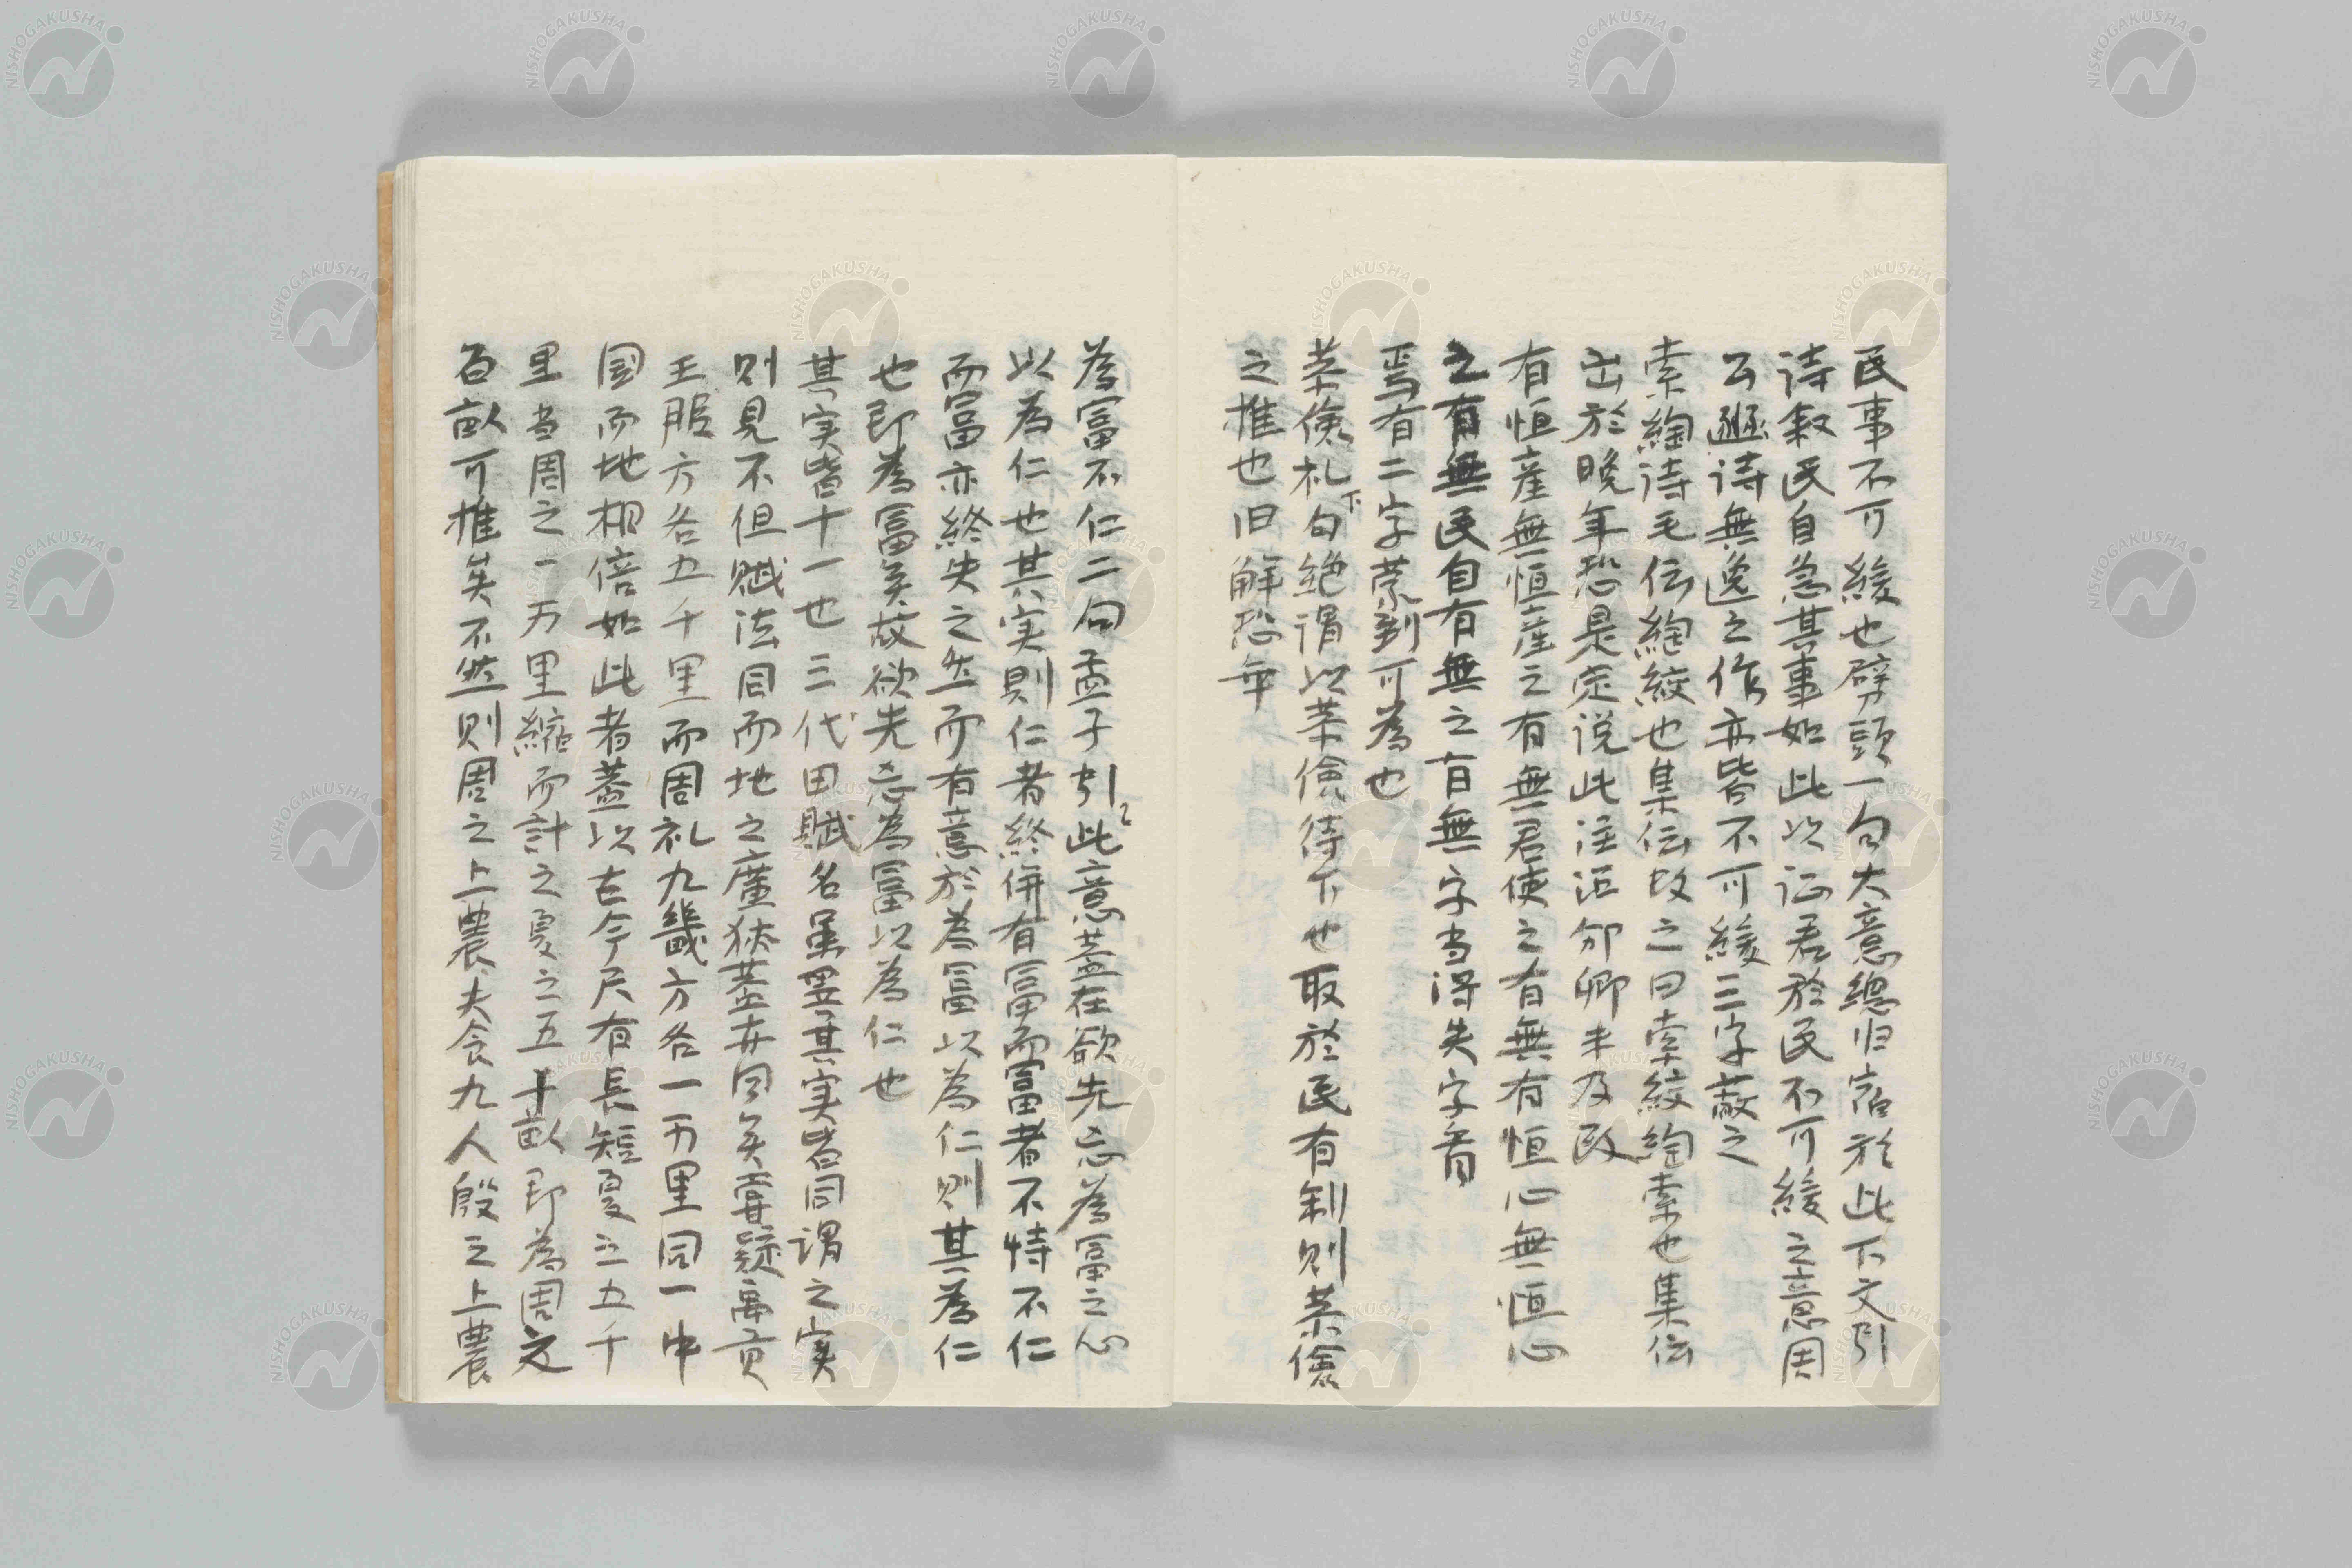 民事不可緩也劈頭一句大意總归宿於此下文引
诗叙民自急其事如此以证君於民不可緩之意周
公豳诗無逸之作亦皆不可緩三字蔽之
索綯诗毛伝綯絞也集伝改之曰索絞綯索也集伝
出於晚年恐是定说此注沿邠卿未及改
有恒産無恒産之有無君使之有無有恒心無恒心
之有無民自有無之有無字当得失字看
焉有二字蒙到可為也
恭儉礼下句絶谓以恭儉待下也取於民有制则恭儉
之推也旧解恐舛
為富不仁二句孟子引之此意蓋在欲先忘為富之心
以為仁也其实則仁者終併有富而富者不特不仁
而富亦終失之然而有意於為富以為仁则其為仁
也即為富矣故欲先忘為富以為仁也
其实皆十一也三代田賦名虽異其实皆同谓之实
则見不但賦法同而地之廣狭蓋亦同矣嘗疑禹贡
五服方各五千里而周礼九畿方各一万里同一中
国而地相倍如此者蓋以古今尺有長短夏之五千
里当周之一万里縮而計之夏之五十畝即為周之
百畝可推矣不然则周之上農夫食九人殷之上農
NISHOGAKUSHA